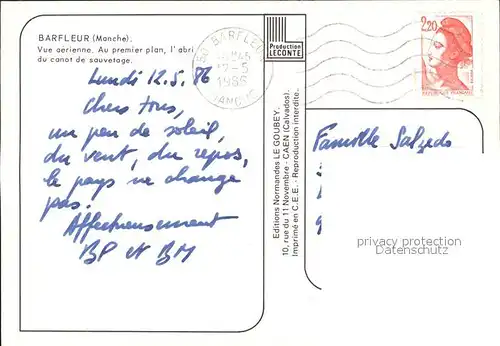 BARFLEUR (Manche).
Vue aérienne. Au premier plan, l'abri
du canot de sauvetage.
Lundi 12.5.86
Chers tous,
un peu de soleil,
du vent, du repos,
le pays ne change
pas.
Affectueusement
BP et BM
50 BARFLEUR
12-5
1986
MANCHE
Production
LECONTE
Editions Normandes LE GOUBEY.
10, rue du 11 Novembre - CAEN (Calvados).
Imprimé en C.E.E. - Reproduction interdite.
2,20
REPUBLIQUE FRANÇAISE
Famille Salzedo
privacy protection
Datenschutz